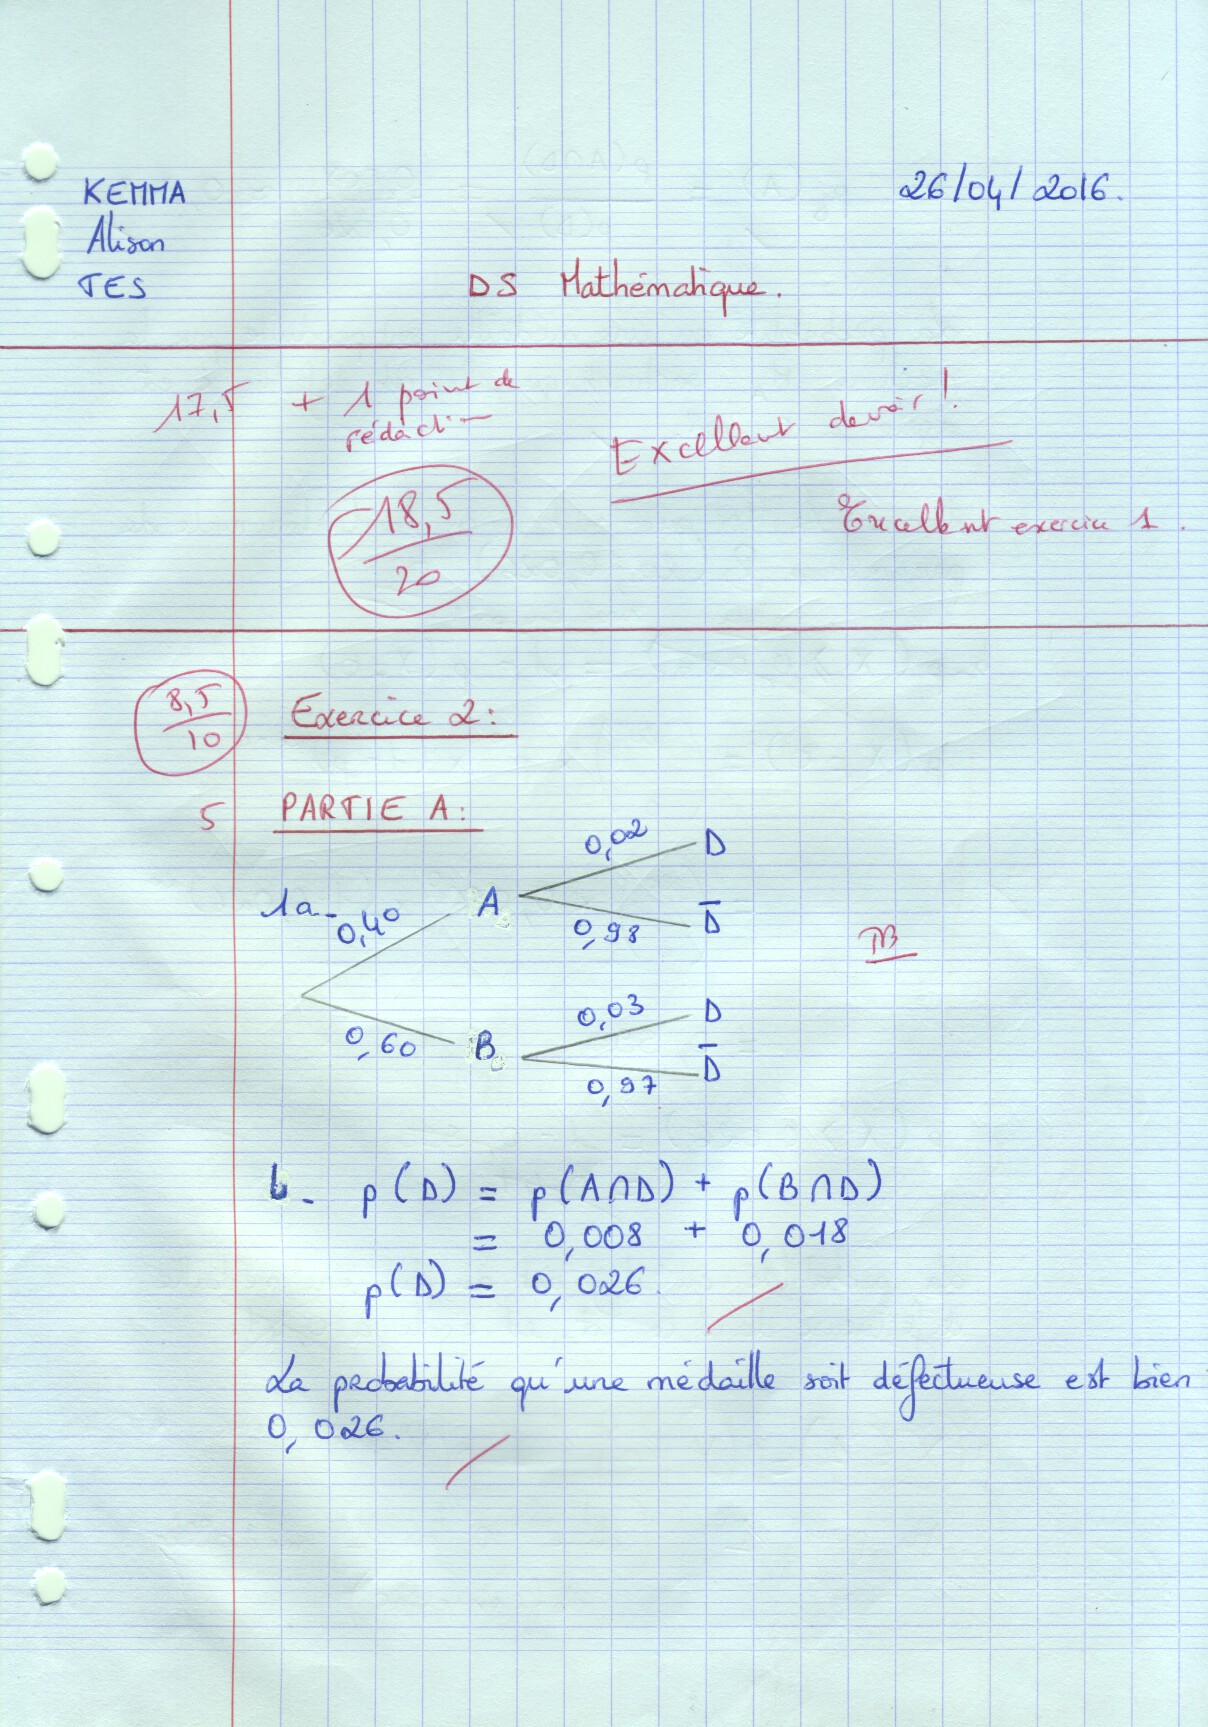 KEMMA
26/04/2016.
Alison
TES
DS Mathématique.
17,5 + 1 point de
rédaction
Excellent devoir !
18,5
20
Excellent exercice 1.
8,5
10
Exercice 2:
5 PARTIE A:
0,02 D
1a- 0,40 A
0,98 D̅
TB
0,03 D
0,60 B
0,97 D̅
b- p(D) = p(A∩D) + p(B∩D)
= 0,008 + 0,018
p(D) = 0,026.
La probabilité qu'une médaille soit défectueuse est bien
0,026.